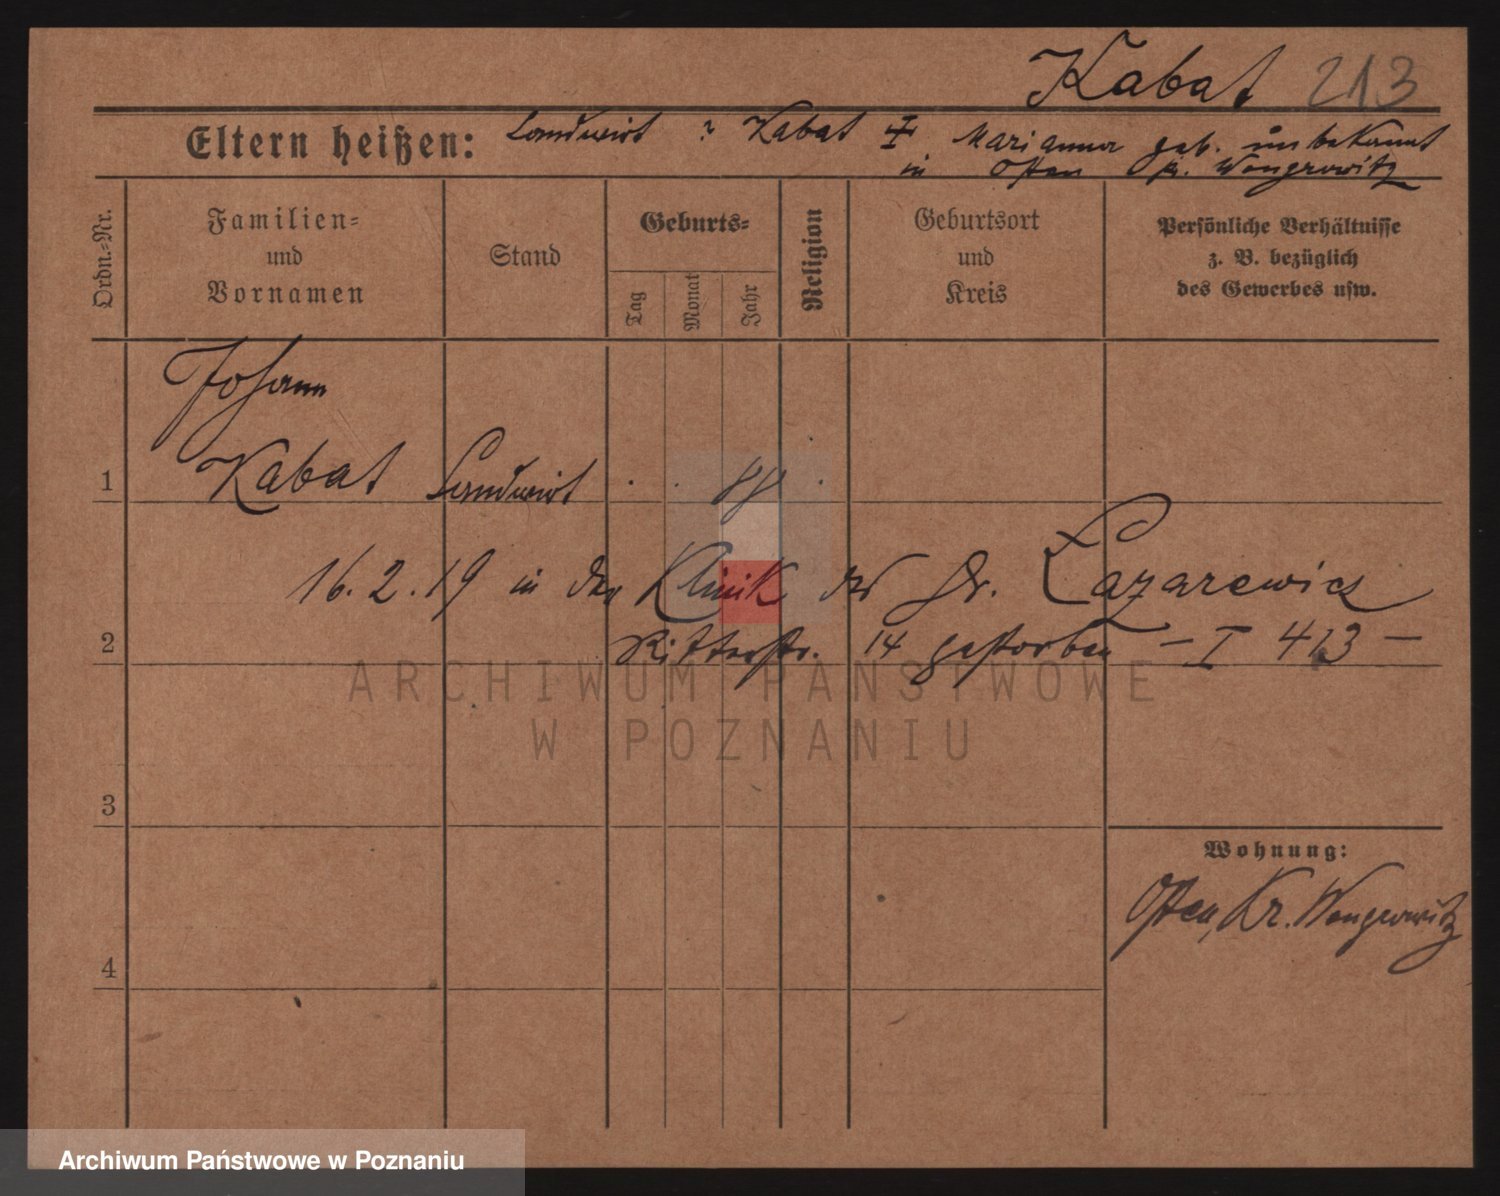 Kabat 213
Eltern heißen: Landwirt ? Kabat Marianna geb. unbekannt
in Osten Kr. Wongrowitz
Ordn.-Nr.
Familien- und Vornamen
Stand
Geburts-
Tag
Monat
Jahr
Religion
Geburtsort und Kreis
Persönliche Verhältnisse
z. B. bezüglich
des Gewerbes usw.
Johann
1 Kabat Landwirt
16.2.19 in der Klinik des Dr. Lazarewicz
2 Ritterstr. 14 gestorben – I 413 –
ARCHIWUM PAŃSTWOWE
W POZNANIU
3
Wohnung:
Osten, Kr. Wongrowitz
4
Archiwum Państwowe w Poznaniu